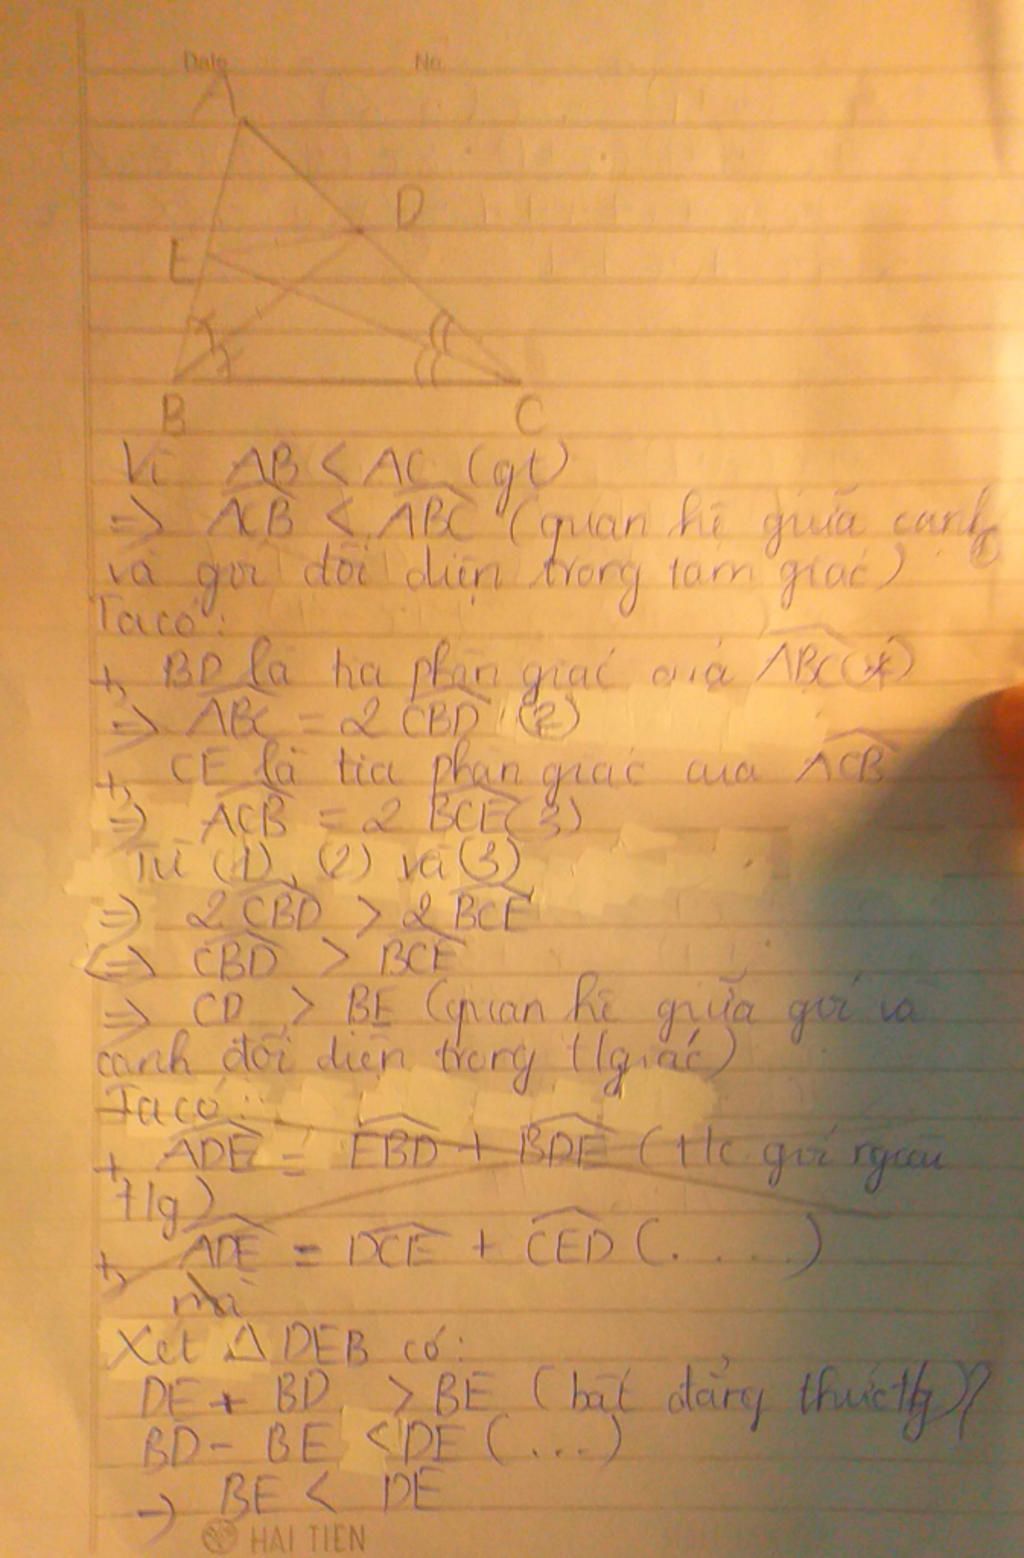 Date No.
A
D
E
B C
Vì AB < AC (gt)
=> ACB < ABC (quan hê giữa canh
và goi đối diện trong tam giác) ①
Ta có:
+, BD là tia phân giác của ABC (*)
=> ABC = 2 CBD (2)
+, CE là tia phân giác cua ACB
=> ACB = 2 BCE (3)
Từ (1), (2) và (3)
=> 2 CBD > 2 BCE
<=> CBD > BCE
=> CD > BE (quan hê giữa goí và
canh đối diện trong t/giác)
Ta có:
+ ADE = EBD + BDE (t/c goí ngoài
t/g)
+, ADE = DCE + CED (. . . .)
mà
Xét Δ DEB có:
DE + BD > BE (bất đẳng thức t/g)?
BD - BE < DE (...)
=> BE < DE
HẢI TIẾN